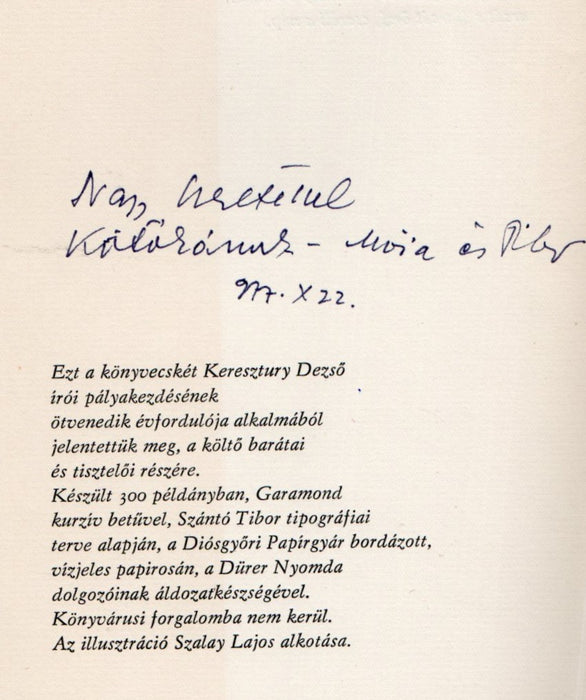 Nagy szeretettel
– Mária és
977. X 22.
Ezt a könyvecskét Keresztury Dezső
írói pályakezdésének
ötvenedik évfordulója alkalmából
jelentettük meg, a költő barátai
és tisztelői részére.
Készült 300 példányban, Garamond
kurzív betűvel, Szántó Tibor tipográfiai
terve alapján, a Diósgyőri Papírgyár bordázott,
vízjeles papirosán, a Dürer Nyomda
dolgozóinak áldozatkészségével.
Könyvárusi forgalomba nem kerül.
Az illusztráció Szalay Lajos alkotása.